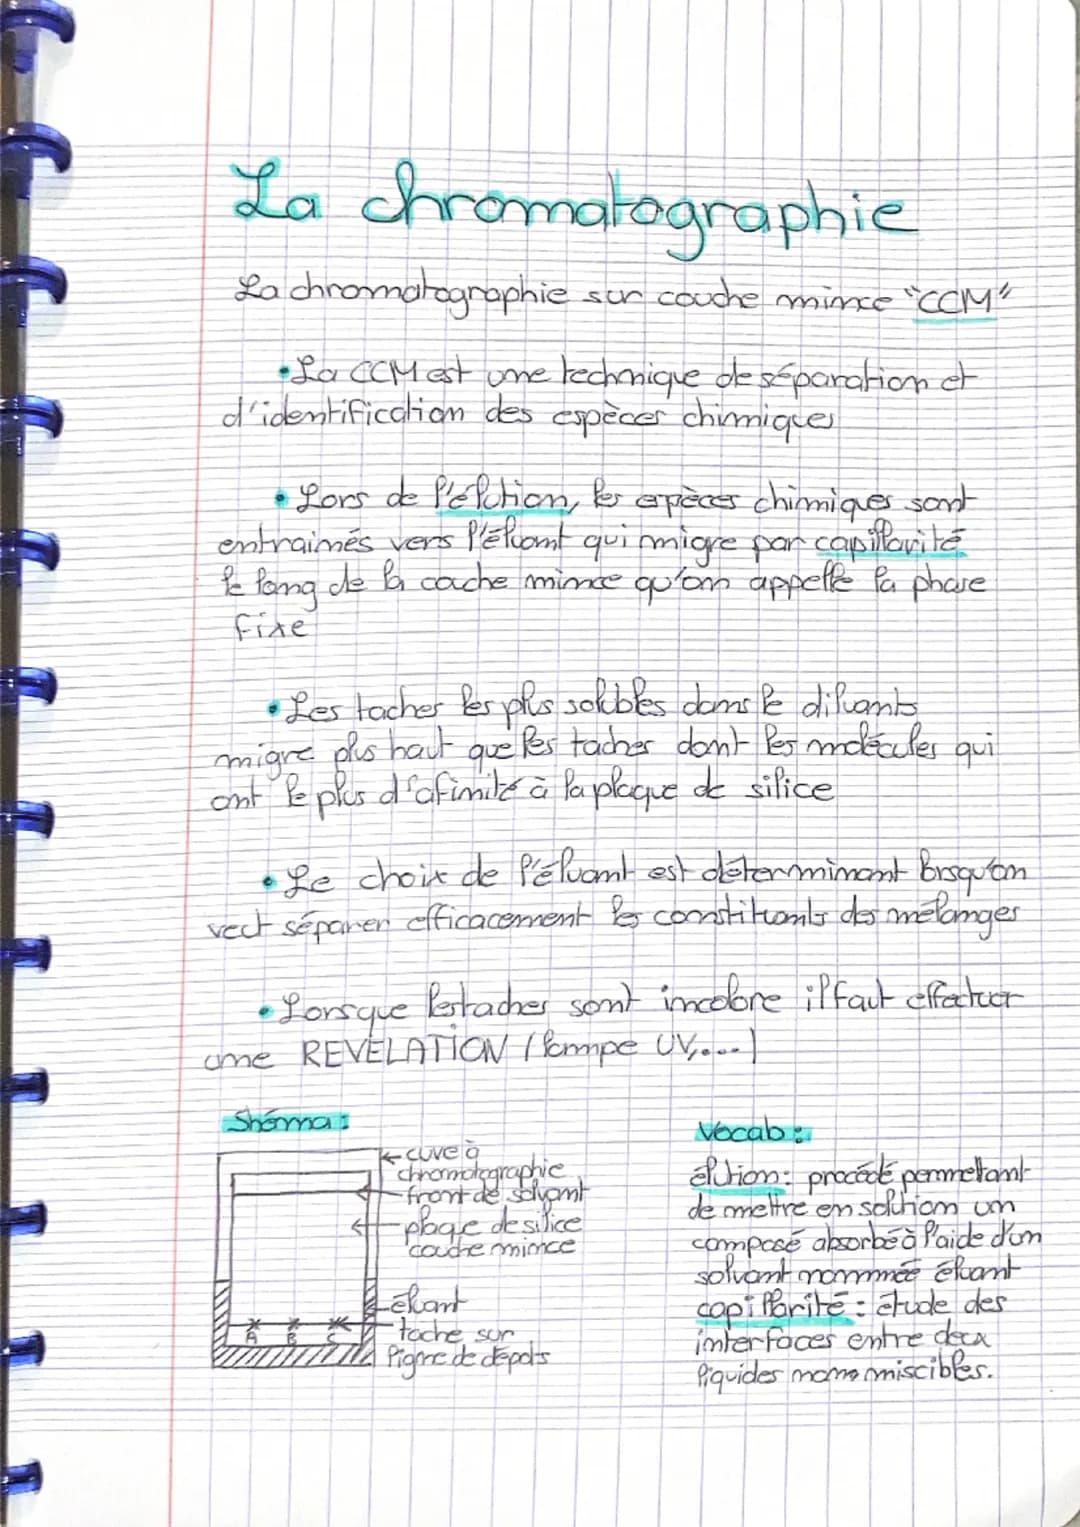 La chromatographie
La chromatographie sur couche mince "CCM"
•La CCM est une technique de séparation et
d'identification des espèces chimiques
• Lors de l'élution, les espèces chimiques sont
entrainés vers l'éluant qui migre par capillarité
le long de la cache mince qu'on appelle la phase
fixe
• Les taches les plus solubles dans le diluants
migre plus haut que les taches dont les molécules qui
ont le plus d'afinité à la plaque de silice
• Le choix de l'éluant est déterminant lorsqu'on
veut séparer efficacement les constituants des mélanges
• Lorsque les taches sont incolore il faut effectuer
une REVELATION (lampe UV,...)
Shéma :
cuve à
chromatographie
front de solvant
plaque de silice
couche mince
éluant
A B C
tache sur
ligne de dépots
Vocab :
élution : procédé permettant
de mettre en solution un
composé absorbé à l'aide d'un
solvant nommée éluant
capillarité : étude des
interfaces entre deux
liquides non miscibles.